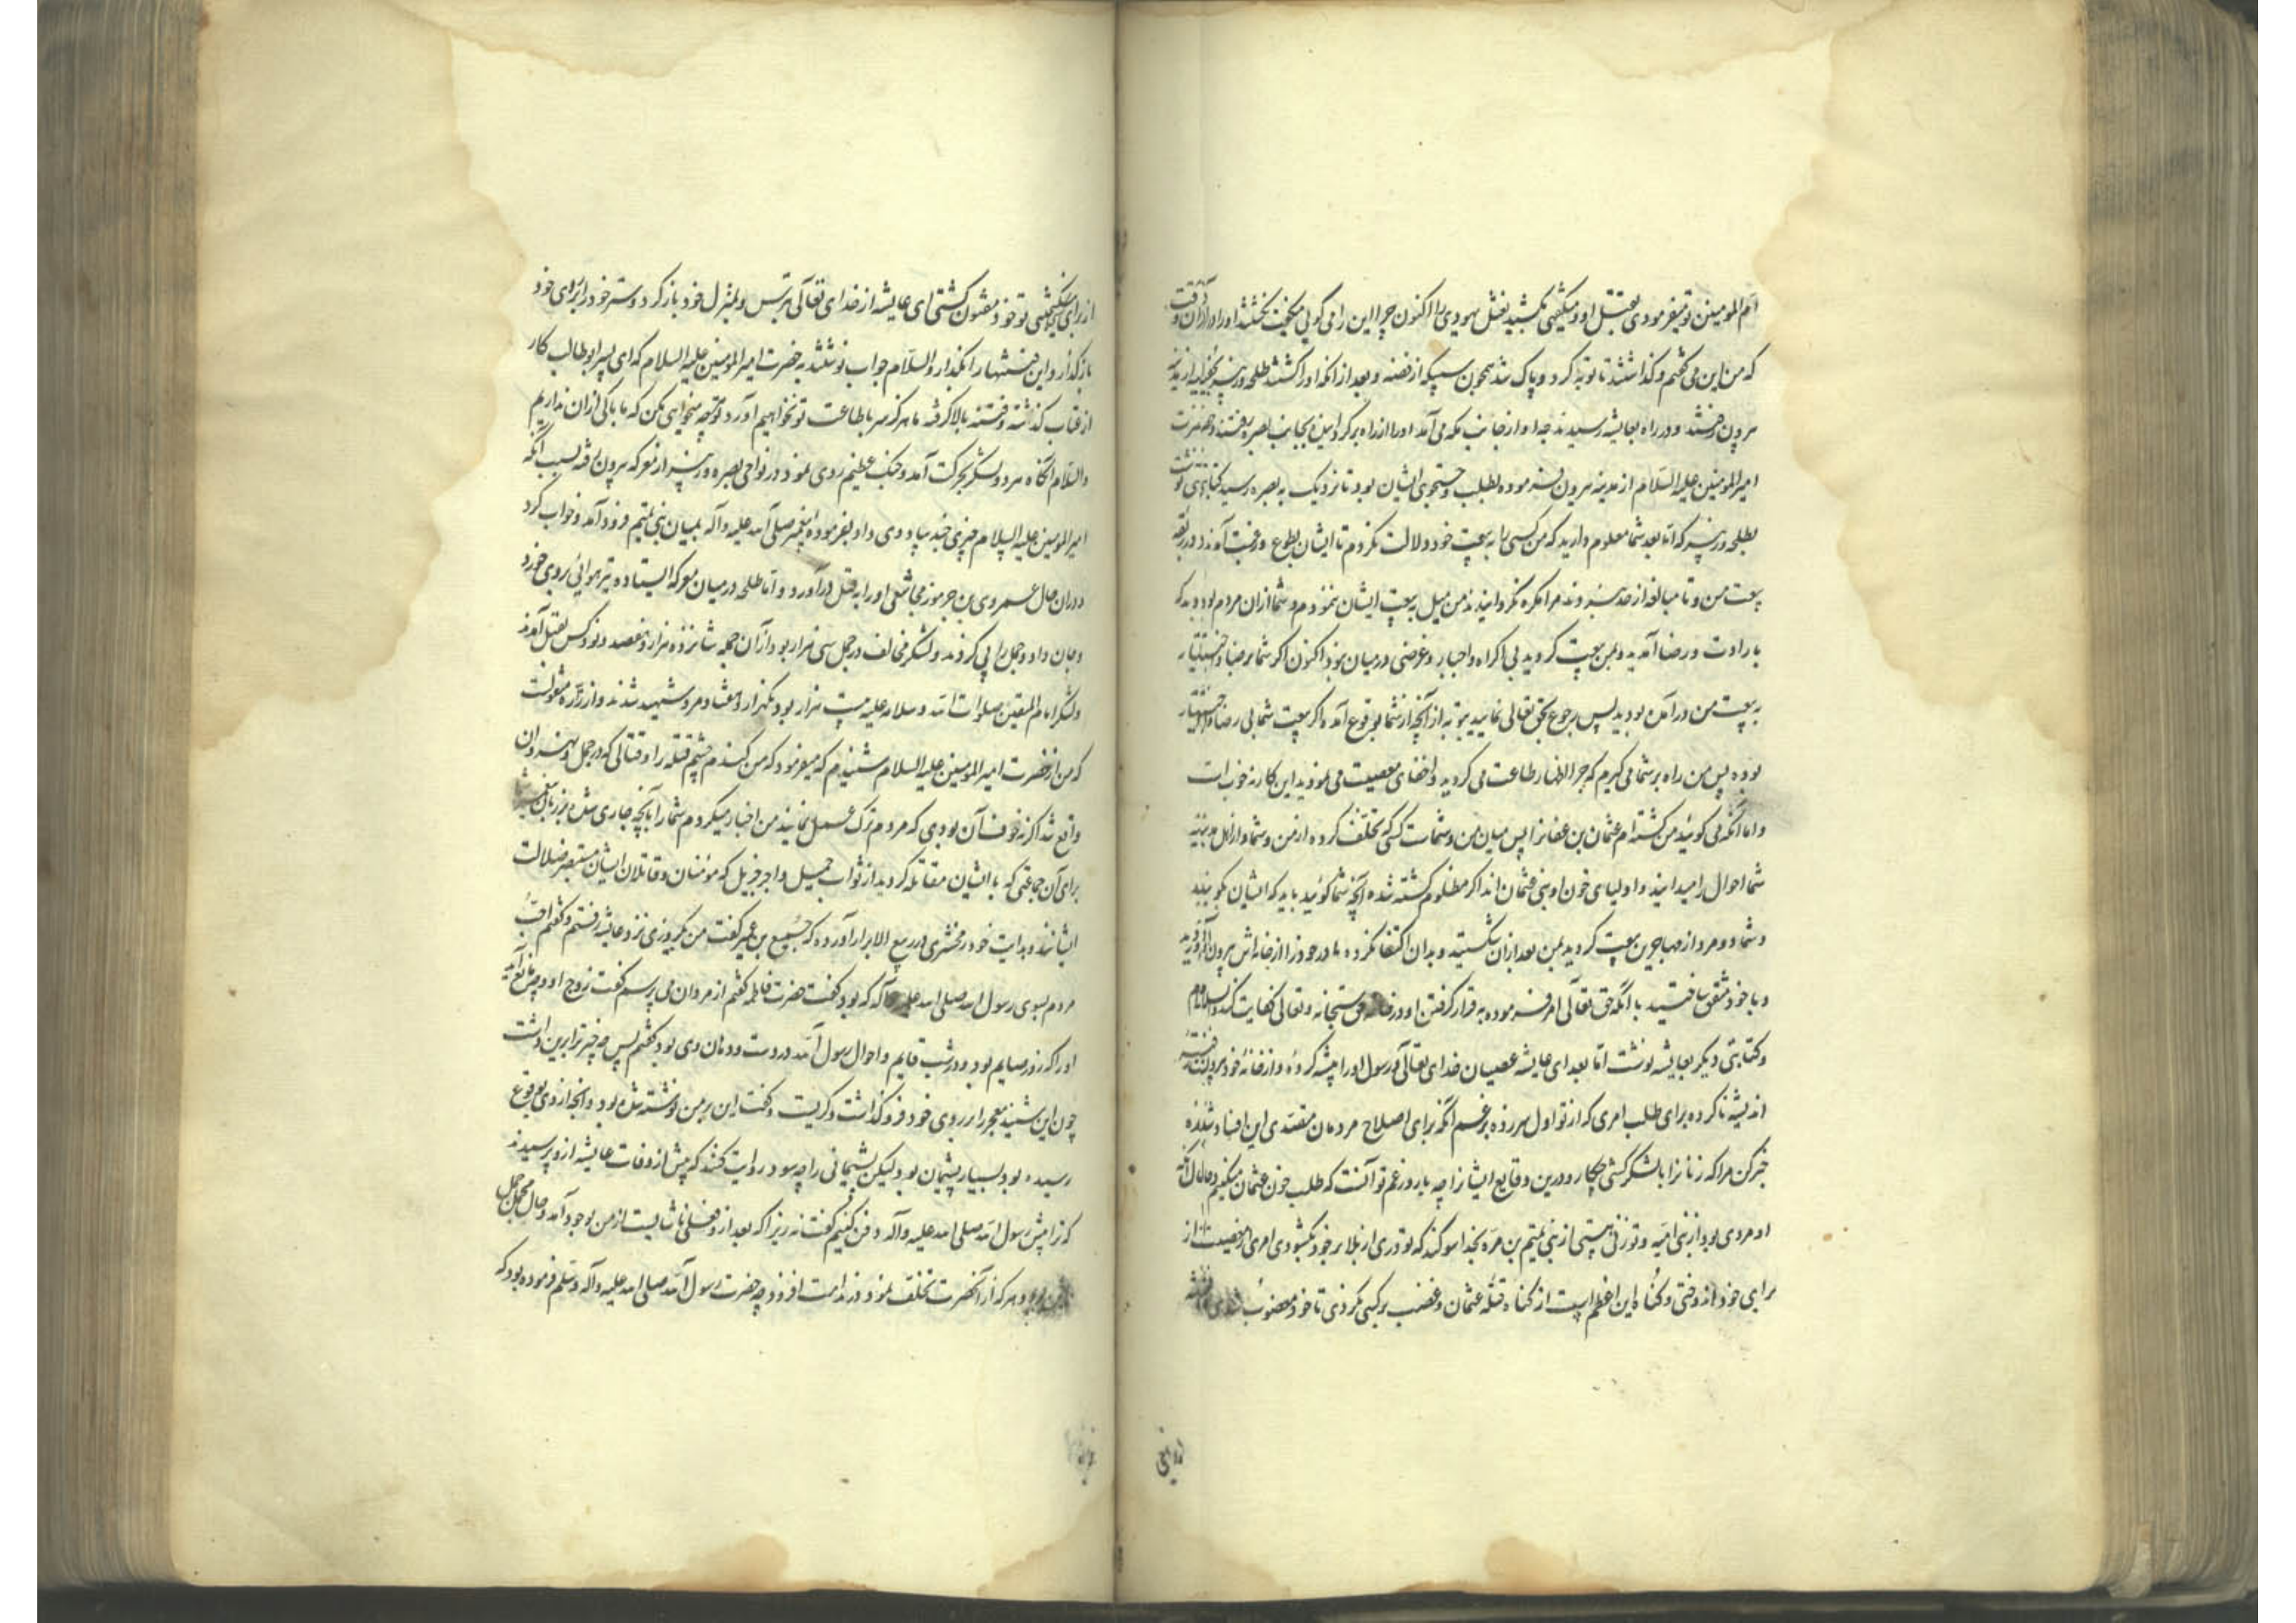 ام المومنین تو میفرمودی بقتل او و میگفتی بکشید نعثل یهودی را اکنون چرا این را می گویی گفت بخشد او را در آن وقت
که من این می گفتم و گذاشتند تا توبه کرد و پاک شد همچون سبیکه از فضه و بعد از انکه او را کشتند طلحه و زبیر
بیرون رفتند و در راه بعایشه رسیدند جدا و از جانب مکه می آمد او را از راه برگردانیده بجانب بصره رفتند و حضرت
امیرالمومنین علیه السلام از مدینه بیرون فرموده بطلب و جستجوی ایشان بود تا نزدیک به بصره رسید کتابتی نوشت
بطلحه و زبیر که اما بعد شما معلوم دارید که من کسی را به بیعت خود دلالت نکردم تا ایشان بطوع و رغبت آمدند در ربقه
بیعت من و تا مبالغه از حد نبردند مرا مکره نگردانیدند من میل به بیعت ایشان ننمودم و شما از ان مردم بودید که
بارادت و رضا آمدید و بمن بیعت کردید بی اکراه و اجبار و غرضی در میان نبود اکنون اکر شما برضا و اختیار
به بیعت من در آمده بودید پس رجوع بحق تعالی نمایید بتوبه از آنچه از شما بوقوع آمد و اکر بیعت شما بی رضا و اختیار
بوده پس من راه بر شما می گیرم که چرا اظهار طاعت می کردید و اخفای معصیت می نمودید این کار نه خوب است
و اما انکه می گوئید من کشته ام عثمان بن عفان را پس میان من و شماست کسی که تخلف کرده از من و شما و از اهل مدینه
شما احوال را میدانید و اولیای خون او بنی عثمان اند اکر مظلوم کشته شده آنچه شما گوئید باید که ایشان بگویند
و شما دو مرد از مهاجرین بیعت کردید بمن بعد از ان شکستید و بدان اکتفا نکرده مادر خود را از خانه اش بیرون آوردید
و با خود متفق ساختید با انکه حق تعالی امر فرموده به قرار گرفتن او در خانه حق سبحانه و تعالی کفایت کند والسلام
و کتابتی دیگر بعایشه نوشت اما بعد ای عایشه عصیان خدای تعالی و رسول او را پیشه کرده و از خانه خود بیرون
اندیشه ناکرده برای طلب امری که از تو اول سر زده بزعم انکه برای اصلاح مردمان مقتدی این افساد شده
خبر کن مرا که زنان را با لشکر کشی چکار و درین وقایع ایشان را چه بار و زعم تو آنست که طلب خون عثمان میکنیم و حال آنکه
او مردی بود از بنی امیه و تو زنی هستی از بنی تیم بن مره بخدا سوگند که تو دری از بلا بر خود بگشودی امری از معصیت
برای خود اندوختی و گناه این اعظم است از گناه قتله عثمان و غضب بر کسی نکردی تا خود مغضوب شدی
از برای و تو خود مفتون گشتی ای عایشه از خدای تعالی بترس و بمنزل خود بازگرد و ستر خود را برای خود
بازگذار و این فتنها را بگذار والسلام جواب نوشتند به حضرت امیرالمومنین علیه السلام که ای پسر ابوطالب کار
از عتاب گذشته و فتنه بالا گرفته ما هرگز سر باطاعت تو نخواهیم آورد تو چه میخواهی بکن که ما باکی از ان نداریم
والسلام آنگاه هر دو لشکر بحرکت آمد و جنگ عظیم روی نمود در نواحی بصره و زبیر از معرکه بیرون رفت بسبب انکه
امیرالمومنین علیه السلام چیزی چند بیاد وی داد بفرموده پیغمبر صلی الله علیه و آله بمیان بنی تمیم فرود آمد و خواب کرد
در ان حال عمروی بن جرموز مجاشعی او را به قتل در آورد و اما طلحه در میان معرکه ایستاده تیر هوائی بر وی خورد
و جان داد و جمل را پی کردند و لشکر مخالف در جمل سی هزار بود از آن جمله شانزده هزار و هفتصد و نود کس بقتل آمدند
و لشکر امام المتقین صلوات الله و سلامه علیه بیست هزار بود و یکهزار و هفتاد مرد شهید شدند و از زراره منقولست
که من از حضرت امیرالمومنین علیه السلام شنیدم که میفرمود که من کندم چشم فتنه را و قتالی که در جمل و نهروان
واقع شد اگر نه خوف آن بودی که مردم ترک عمل نمایند من اخبار میکردم شما را بآنچه جاری شده بر زبان پیغمبر شما
برای آن جماعتی که با ایشان مقاتله کردید از ثواب جمیل و اجر جزیل که مؤمنان و قاتلان ایشان مستبصر ضلالت
ایشانند و بدایت خود زمخشری در ربیع الابرار آورده که جمیع بن عمیر گفت من یکروزی نزد عایشه رفتم و گفتم احب
مردم بسوی رسول الله صلی الله علیه و آله که بود گفت حضرت فاطمه گفتم از مردان می پرسم گفت زوج او و چه مانع آید
او را که روز صایم بود و در شب قایم و احوال رسول الله در دست و دهان وی بود گفتم پس چه چیز ترا برین داشت
چون این شنید معجر را بر روی خود فرو گذاشت و گریست و گفت این بر من نوشته شده بود و آنچه از وی بوقوع
رسیده بود بسیار پشیمان بود لیکن پشیمانی را چه سود روایت کنند که پیش از وفات عایشه از و پرسیدند
که ترا پیش رسول الله صلی الله علیه و آله دفن کنیم گفت نه زیرا که بعد از و فعلی ناشایست از من بوجود آمد و حال مجمل جمل
این بود و هر که از آنحضرت تخلف نمود و ندامت افزود چه حضرت رسول الله صلی الله علیه و آله وسلم فرموده بود که